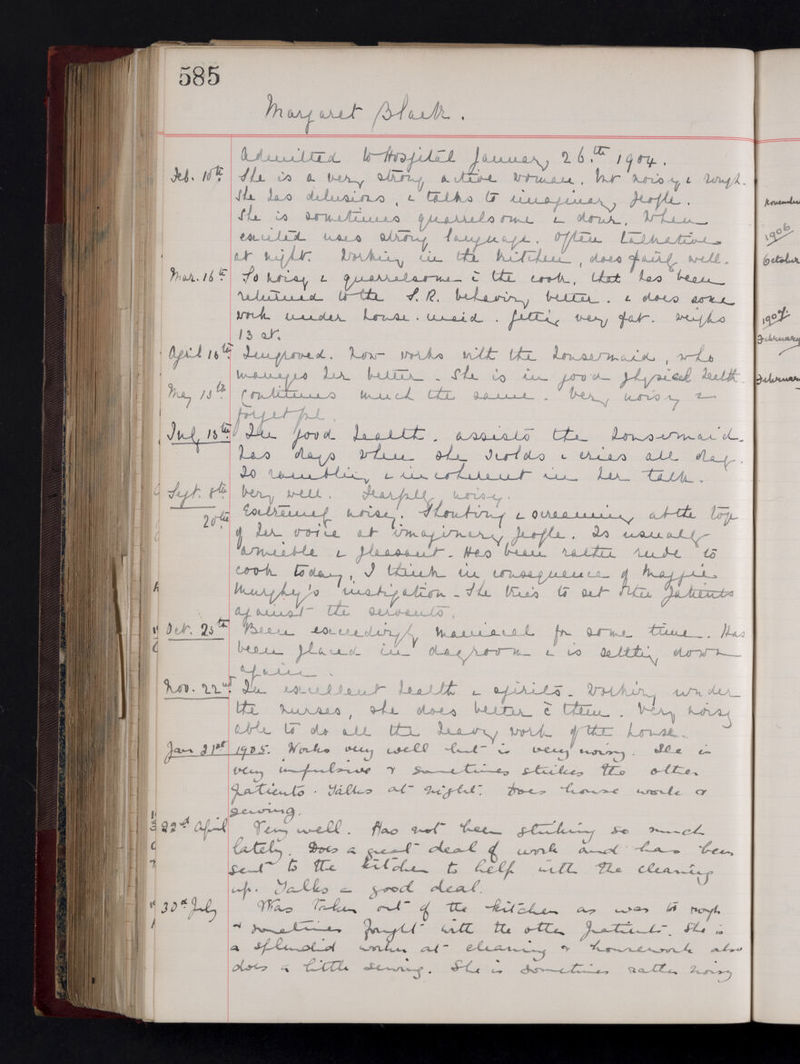 585
Margaret Black.
Admitted to Hospital January 26.th 1904.
Feb. 10th She is a very strong active woman, but noisy & rough.
She has delusions, & talks to imaginary people.
She is sometimes quarrelsome & dour. When
excited uses strong language. Often talkative
at night. Working in the kitchen, does fairly well.
Mar. 16th So noisy & quarrelsome c̄ the cook, that has been
returned to the S.R. behaving better. & does some
work under house-maid. Getting very fat. weighs
13 st.
April 16th Improved. Now works with the housemaid, who
manages her better. She is in good physical health.
May 13th Continues much the same. Very noisy &
forgetful.
July 13th In good health. assists the housemaid.
Has days when she scolds & cries all day.
Is rambling & incoherent in her talk.
Sept. 8th Very well. Fearfully noisy.
20th Extremely noisy. Shouting & screaming at the top
of her voice at imaginary people. Is usually
amiable & pleasant. Has been rather rude to
cook today, I think in consequence of Maggie
Murphy's instigation - She tries to set other patients
against the servants.
Oct. 25th Been exceedingly maniacal for some time. Has
been placed in dayroom & is settling down
again.
Nov. 22nd In excellent health & spirits. Working under
the nurses, she does better c̄ them. Very noisy
able to do all the heavy work of the house.
Jan 31st 1905. Works very well but is very noisy. She is
very impulsive & sometimes strikes the other
patients. Talks at night. Does house work &
sewing.
22nd April Very well. Has not been striking so much
lately. Does a great deal of work and has been
sent to the kitchen to help with the cleaning
up. Talks a good deal.
30th July Was taken out of the kitchen as was too rough
& sometimes fought with the other patients. She is
a splendid worker at cleaning & housework also
does a little sewing. She is sometimes rather noisy
1906
October
1907
February